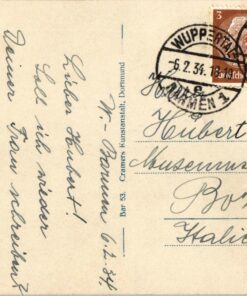 W-Barmen 6.2.34.
Lieber Hubert!
Soll ich wieder
Deiner Frau schreiben?
Bar 53. Cramers Kunstanstalt, Dortmund
3
WUPPERTAL
-6.2.34.
BARMEN 1
Hubert
Museum
Bo
Italie